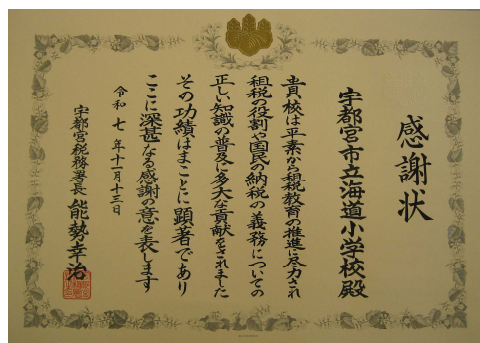 感謝状
宇都宮市立海道小学校殿
貴校は平素から租税教育の推進に尽力され
租税の役割や国民の納税の義務についての
正しい知識の普及に多大な貢献をされました
その功績はまことに顕著であり
ここに深甚なる感謝の意を表します
令和七年十一月十三日
宇都宮税務署長 能勢幸治